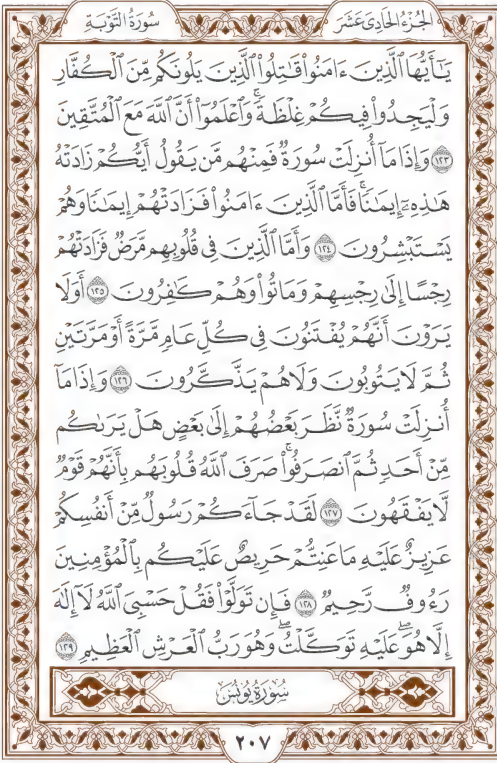 سُورَةُ التَّوْبَةِ
الجُزْءُ الحَادِي عَشَرَ
يَـٰٓأَيُّهَا ٱلَّذِينَ ءَامَنُوا۟ قَـٰتِلُوا۟ ٱلَّذِينَ يَلُونَكُم مِّنَ ٱلْكُفَّارِ
وَلْيَجِدُوا۟ فِيكُمْ غِلْظَةً ۚ وَٱعْلَمُوٓا۟ أَنَّ ٱللَّهَ مَعَ ٱلْمُتَّقِينَ
١٢٣ وَإِذَا مَآ أُنزِلَتْ سُورَةٌ فَمِنْهُم مَّن يَقُولُ أَيُّكُمْ زَادَتْهُ
هَـٰذِهِۦٓ إِيمَـٰنًا ۚ فَأَمَّا ٱلَّذِينَ ءَامَنُوا۟ فَزَادَتْهُمْ إِيمَـٰنًا وَهُمْ
يَسْتَبْشِرُونَ ١٢٤ وَأَمَّا ٱلَّذِينَ فِى قُلُوبِهِم مَّرَضٌ فَزَادَتْهُمْ
رِجْسًا إِلَىٰ رِجْسِهِمْ وَمَاتُوا۟ وَهُمْ كَـٰفِرُونَ ١٢٥ أَوَلَا
يَرَوْنَ أَنَّهُمْ يُفْتَنُونَ فِى كُلِّ عَامٍ مَّرَّةً أَوْ مَرَّتَيْنِ
ثُمَّ لَا يَتُوبُونَ وَلَا هُمْ يَذَّكَّرُونَ ١٢٦ وَإِذَا مَآ
أُنزِلَتْ سُورَةٌ نَّظَرَ بَعْضُهُمْ إِلَىٰ بَعْضٍ هَلْ يَرَىٰكُم
مِّنْ أَحَدٍ ثُمَّ ٱنصَرَفُوا۟ ۚ صَرَفَ ٱللَّهُ قُلُوبَهُم بِأَنَّهُمْ قَوْمٌ
لَّا يَفْقَهُونَ ١٢٧ لَقَدْ جَآءَكُمْ رَسُولٌ مِّنْ أَنفُسِكُمْ
عَزِيزٌ عَلَيْهِ مَا عَنِتُّمْ حَرِيصٌ عَلَيْكُم بِٱلْمُؤْمِنِينَ
رَءُوفٌ رَّحِيمٌ ١٢٨ فَإِن تَوَلَّوْا۟ فَقُلْ حَسْبِىَ ٱللَّهُ لَآ إِلَـٰهَ
إِلَّا هُوَ ۖ عَلَيْهِ تَوَكَّلْتُ ۖ وَهُوَ رَبُّ ٱلْعَرْشِ ٱلْعَظِيمِ ١٢٩
سُورَةُ يُونُسَ
٢٠٧